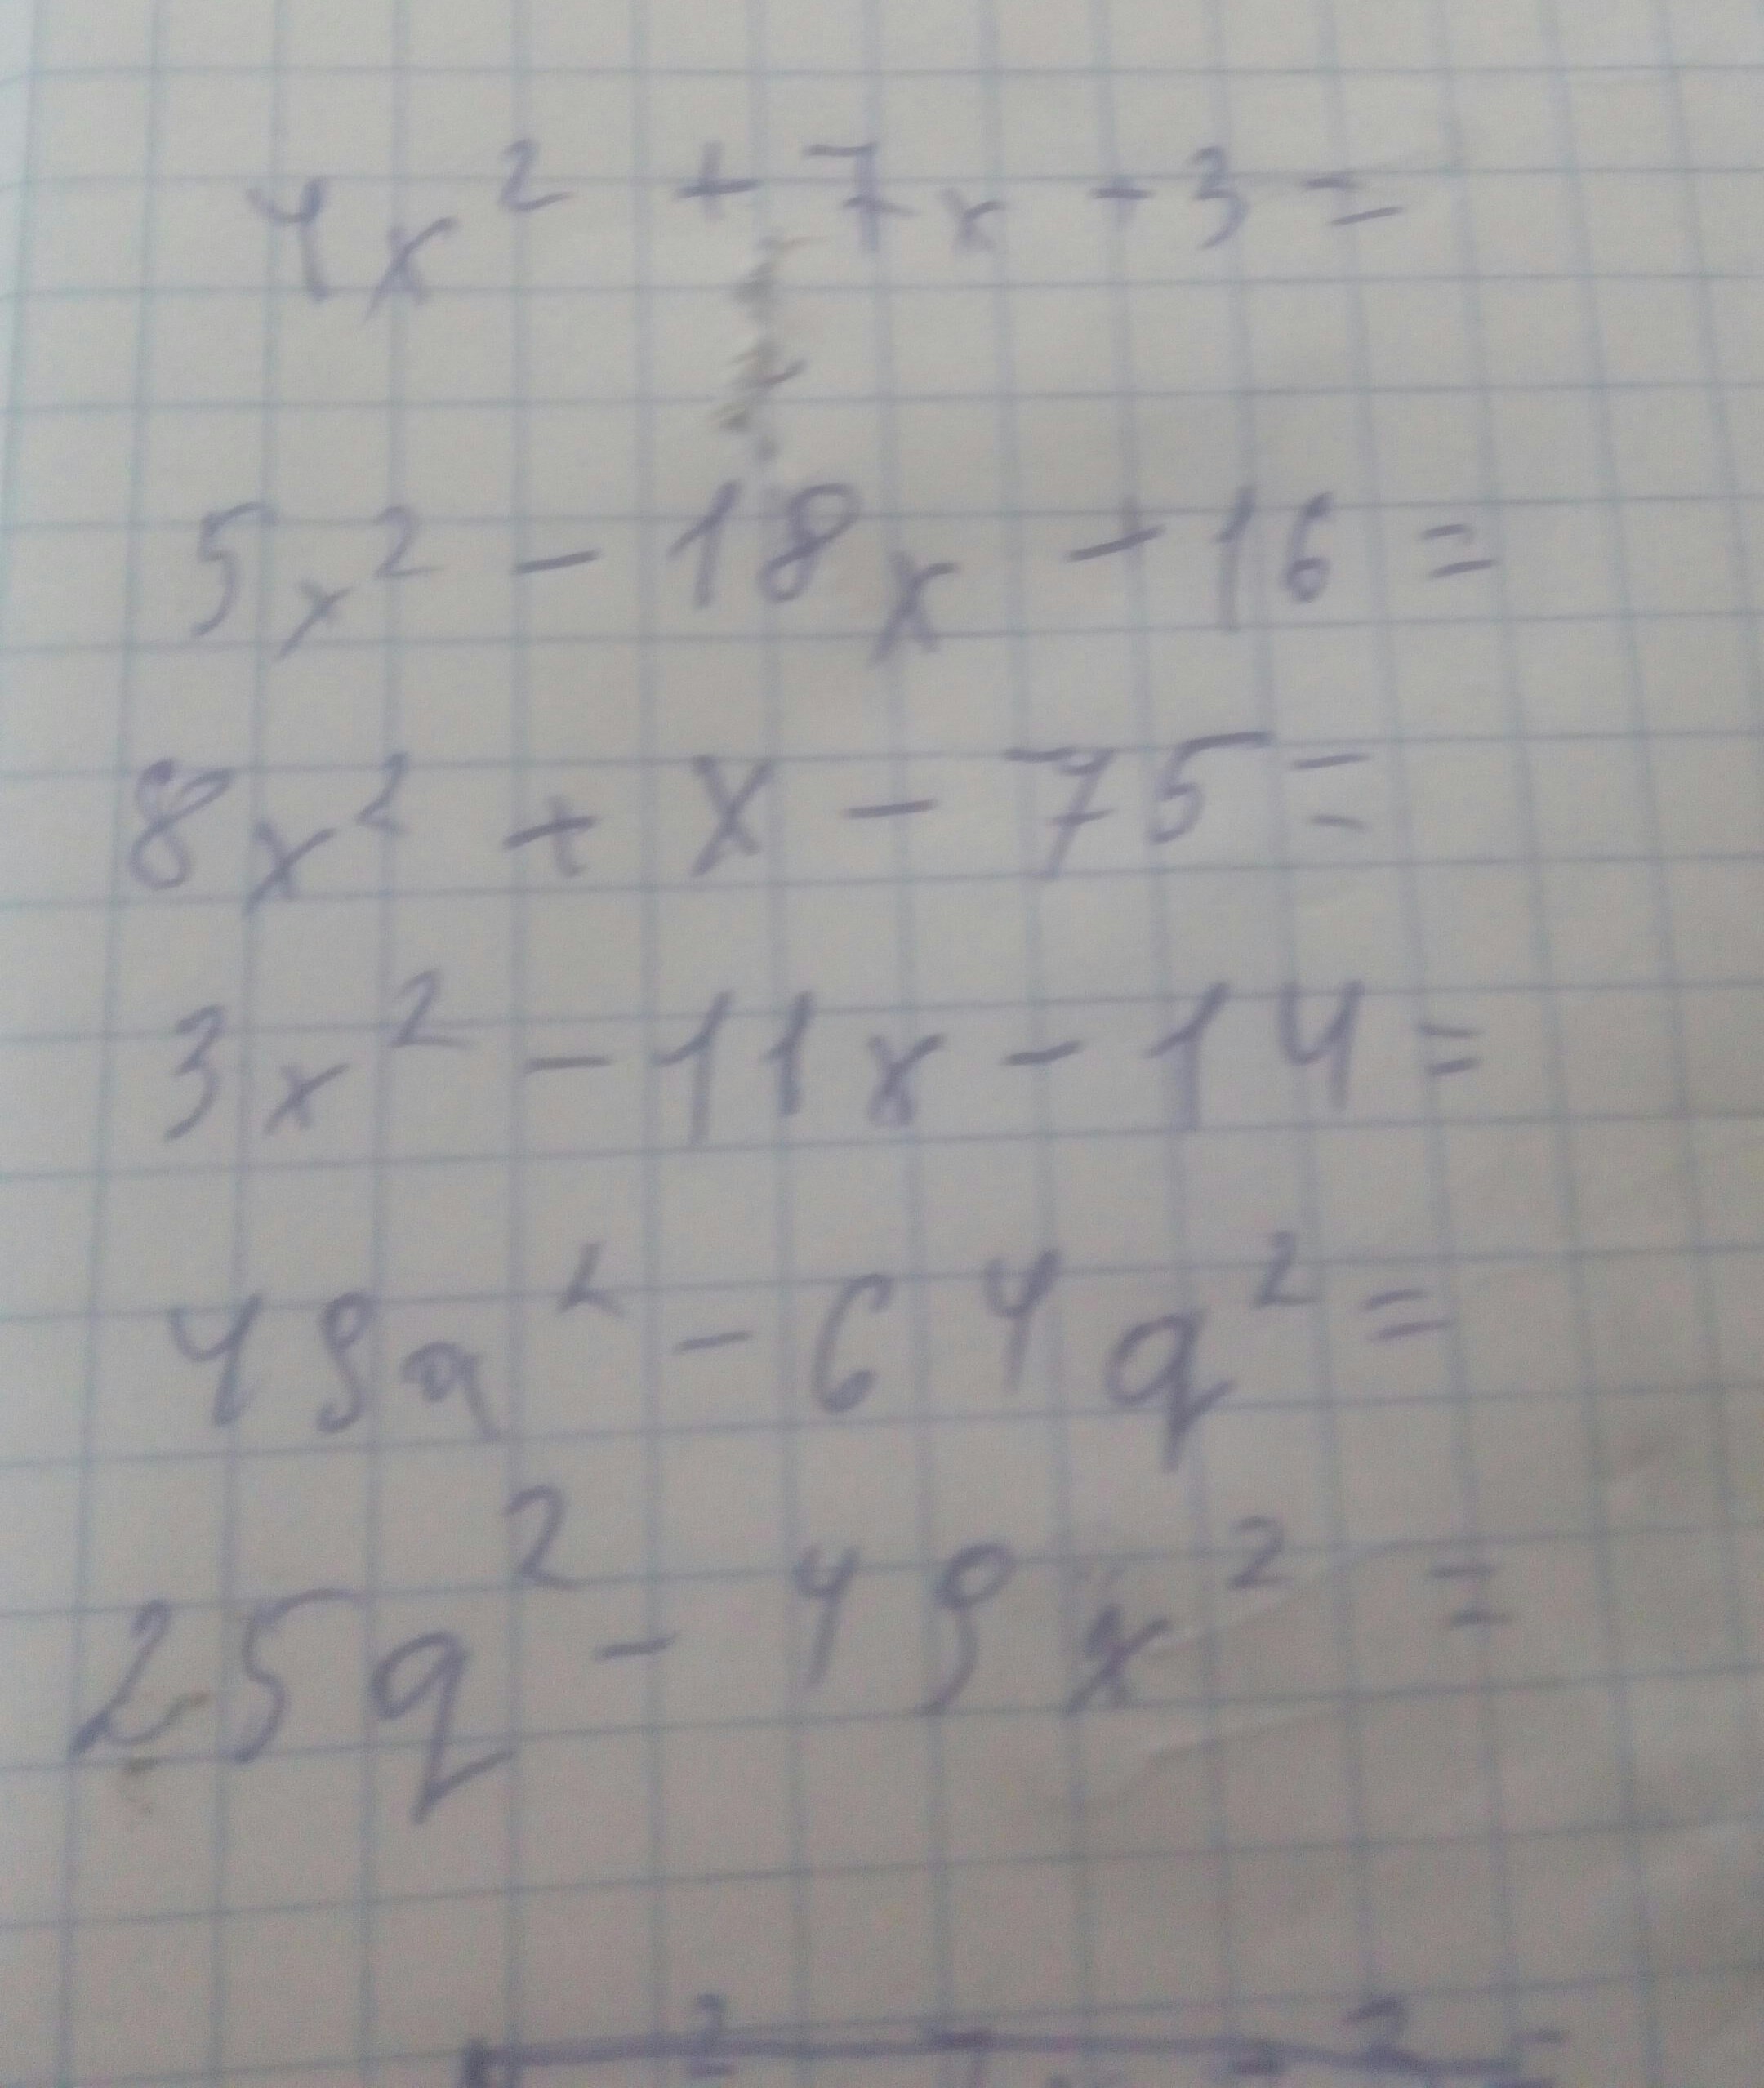 4x² + 7x + 3 =
5x² - 18x + 16 =
8x² + x - 75 =
3x² - 11x - 14 =
49a² - 64q² =
25q² - 49x² =